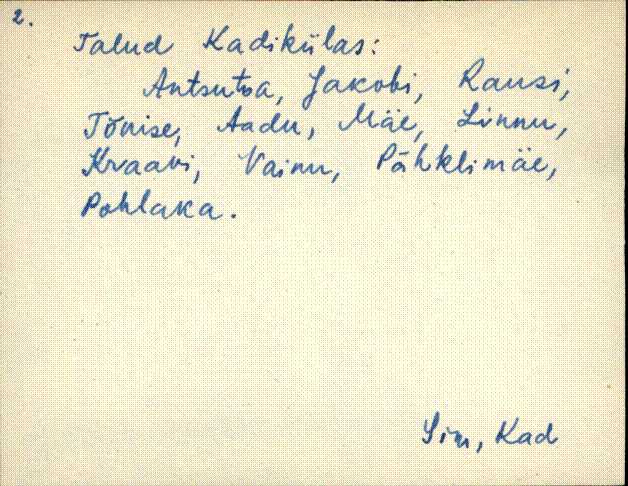 2.
Talud Kadikülas:
Antsutoa, Jakobi, Rausi,
Tõnise, Aadu, Mäe, Linnu,
Kraavi, Vainu, Pähklimäe,
Pohlaka.
Sim, Kad